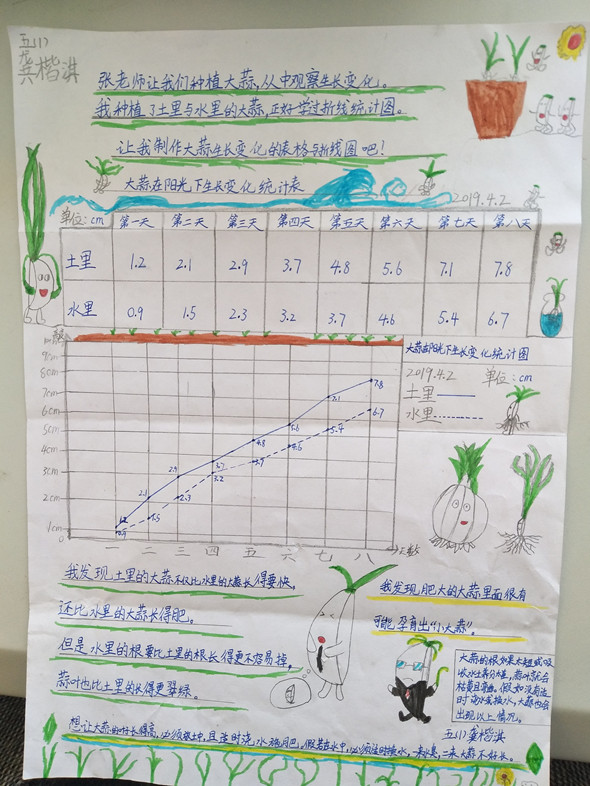 五(1)
龚楷淇
张老师让我们种植大蒜,从中观察生长变化。
我种植了土里与水里的大蒜,正好学过折线统计图。
让我制作大蒜生长变化的表格与折线图吧!
大蒜在阳光下生长变化统计表
2019.4.2
单位:cm 第一天 第二天 第三天 第四天 第五天 第六天 第七天 第八天
土里 1.2 2.1 2.9 3.7 4.8 5.6 7.1 7.8
水里 0.9 1.5 2.3 3.2 3.7 4.6 5.4 6.7
大蒜在阳光下生长变化统计图
2019.4.2 单位:cm
土里
水里
9cm
8cm
7cm
6cm
5cm
4cm
3cm
2cm
1cm
0
1.2 2.1 2.9 3.7 4.8 5.6 7.1 7.8
0.9 1.5 2.3 3.2 3.7 4.6 5.4 6.7
一 二 三 四 五 六 七 八 天数
我发现土里的大蒜不仅比水里的大蒜长得要快。
还比水里的大蒜长得肥。
但是水里的根要比土里的根长得更不容易掉,
蒜叶也比土里的长得更翠绿。
我发现,肥大的大蒜里面很有
可能孕育出“小大蒜”。
大蒜的根如果太短或吸
收水土养分慢,蒜叶就会
枯黄且弯曲。假如没有适
时浇水或换水,大蒜也会
出现以上情况。
五(1) 龚楷淇
想让大蒜的叶长得高,必须栽土中,且适时浇水施肥。假若在水中,必须适时换水,大蒜不好长。